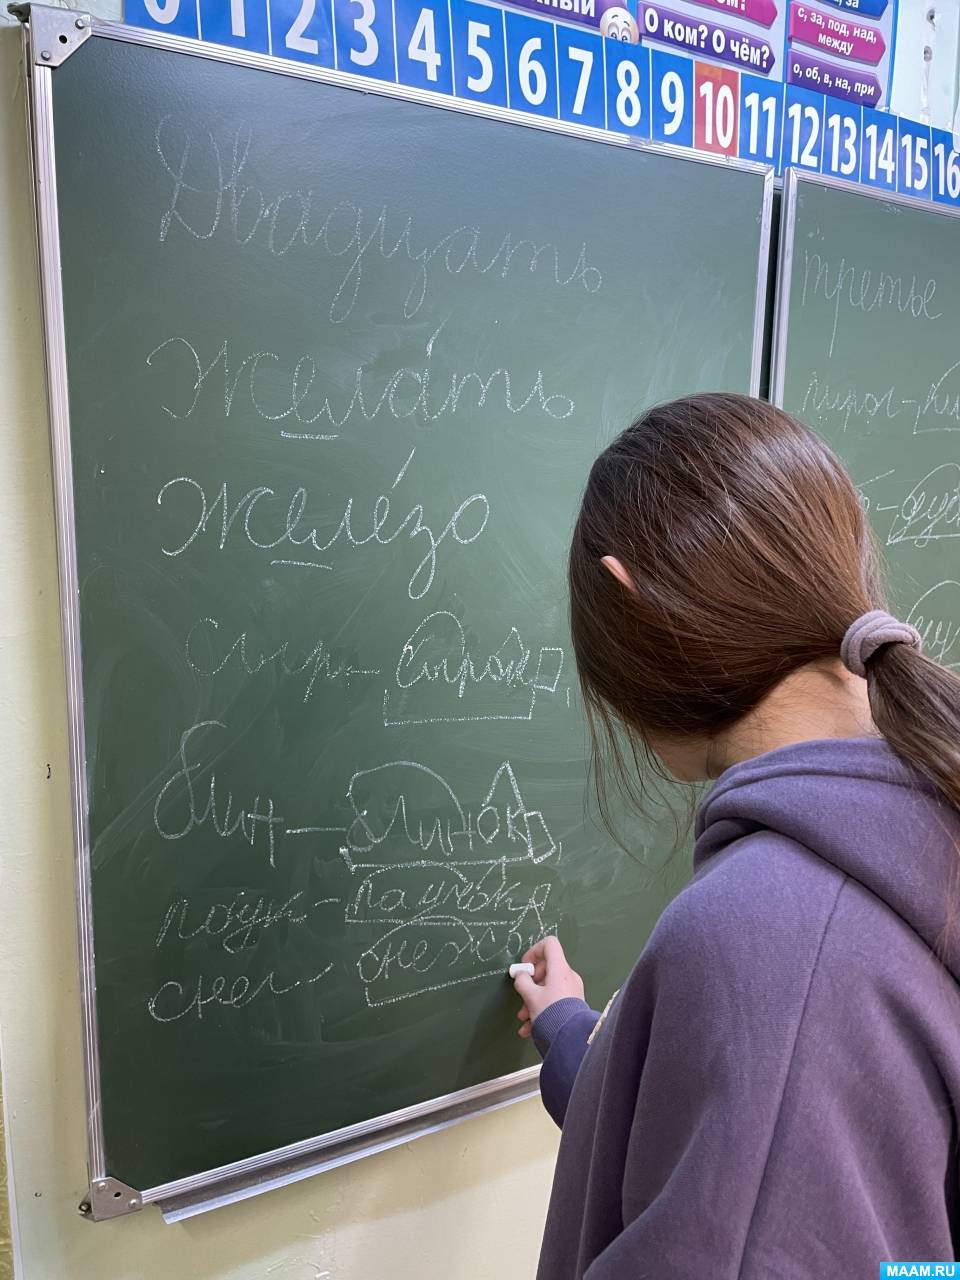 0 1 2 3 4 5 6 7 8 9 10 11 12 13 14 15 16
О ком? О чём?
с, за, под, над,
между
о, об, в, на, при
Двадцать
Желать
Железо
сыр - сырок
блин - блинок
паук - паучок
снег - снежок
третье
пирог -
MAAM.RU